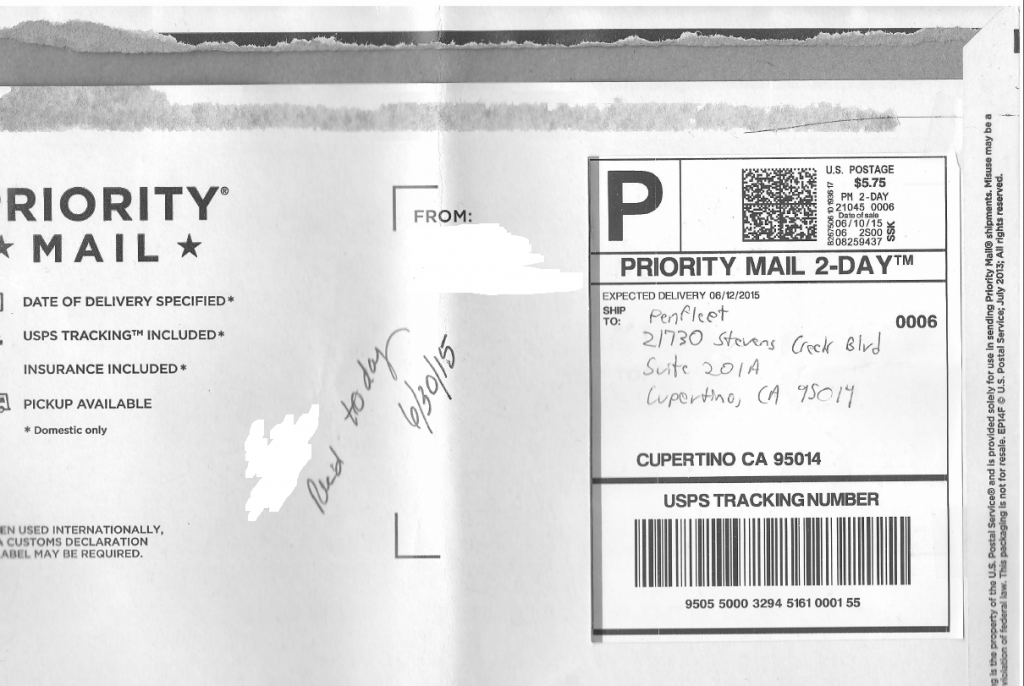 PRIORITY®
★ MAIL ★
DATE OF DELIVERY SPECIFIED*
USPS TRACKING™ INCLUDED*
INSURANCE INCLUDED*
PICKUP AVAILABLE
* Domestic only
EN USED INTERNATIONALLY,
A CUSTOMS DECLARATION
LABEL MAY BE REQUIRED.
FROM:
Recd today
6/30/15
P
U.S. POSTAGE
$5.75
PM 2-DAY
21045 0006
Date of sale
06/10/15
06 2S00
08259437
SSK
PRIORITY MAIL 2-DAY™
EXPECTED DELIVERY 06/12/2015
0006
SHIP
TO:
Penfleet
21730 Stevens Creek Blvd
Suite 201A
Cupertino, CA 95014
CUPERTINO CA 95014
USPS TRACKING NUMBER
9505 5000 3294 5161 0001 55
g is the property of the U.S. Postal Service® and is provided solely for use in sending Priority Mail® shipments. Misuse may be a
violation of federal law. This packaging is not for resale. EP14F © U.S. Postal Service; July 2013; All rights reserved.